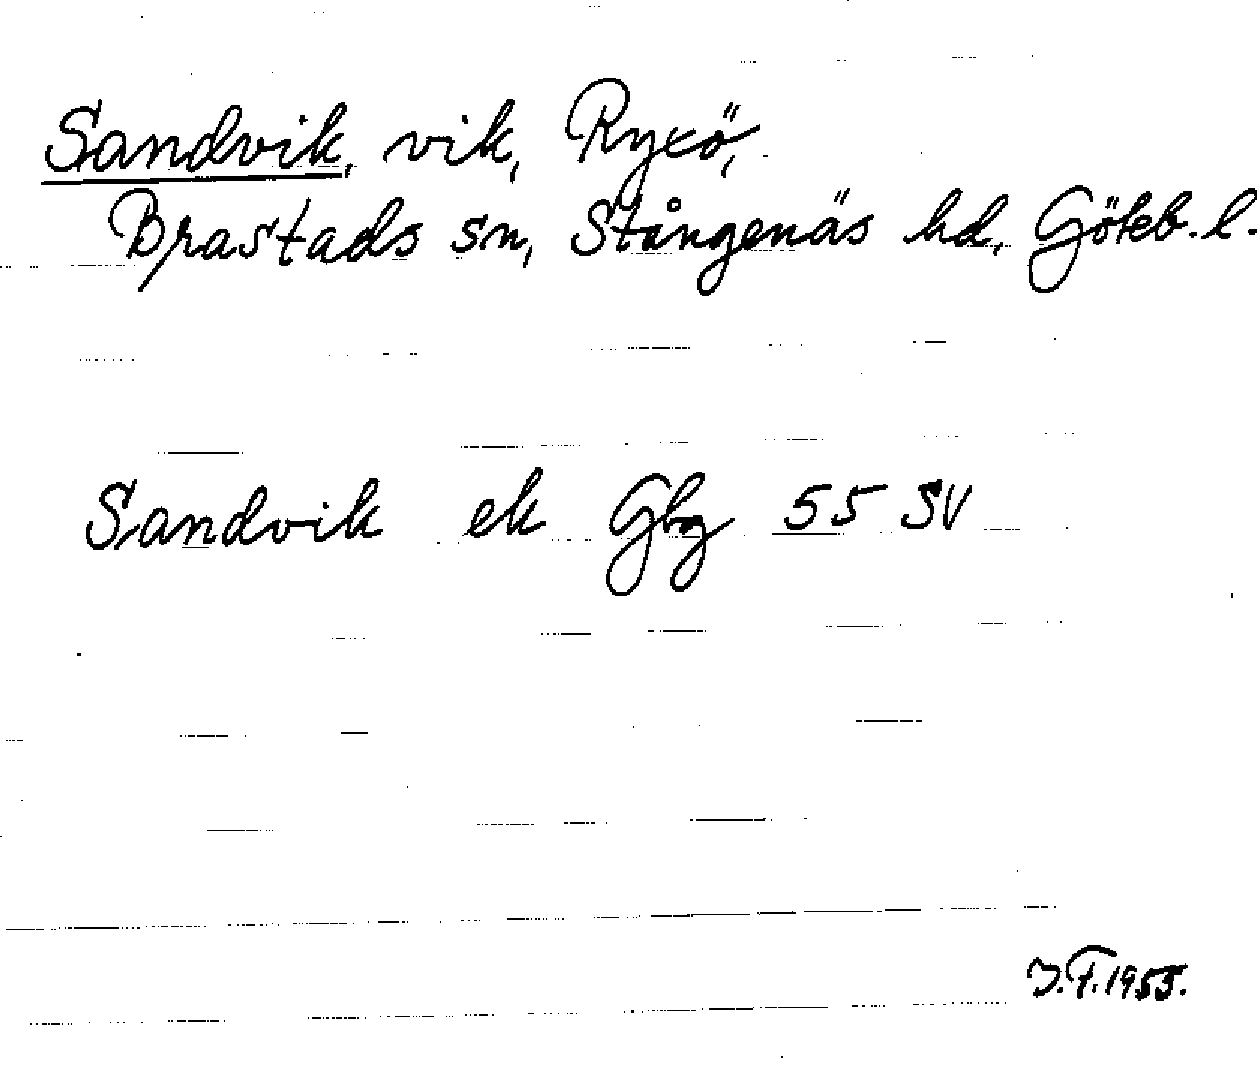 Sandvik, vik, Ryxö,
Brastads sn, Stångenäs hd, Göteb. l.
Sandvik ek Gbg 55 SV
J.F. 1955.